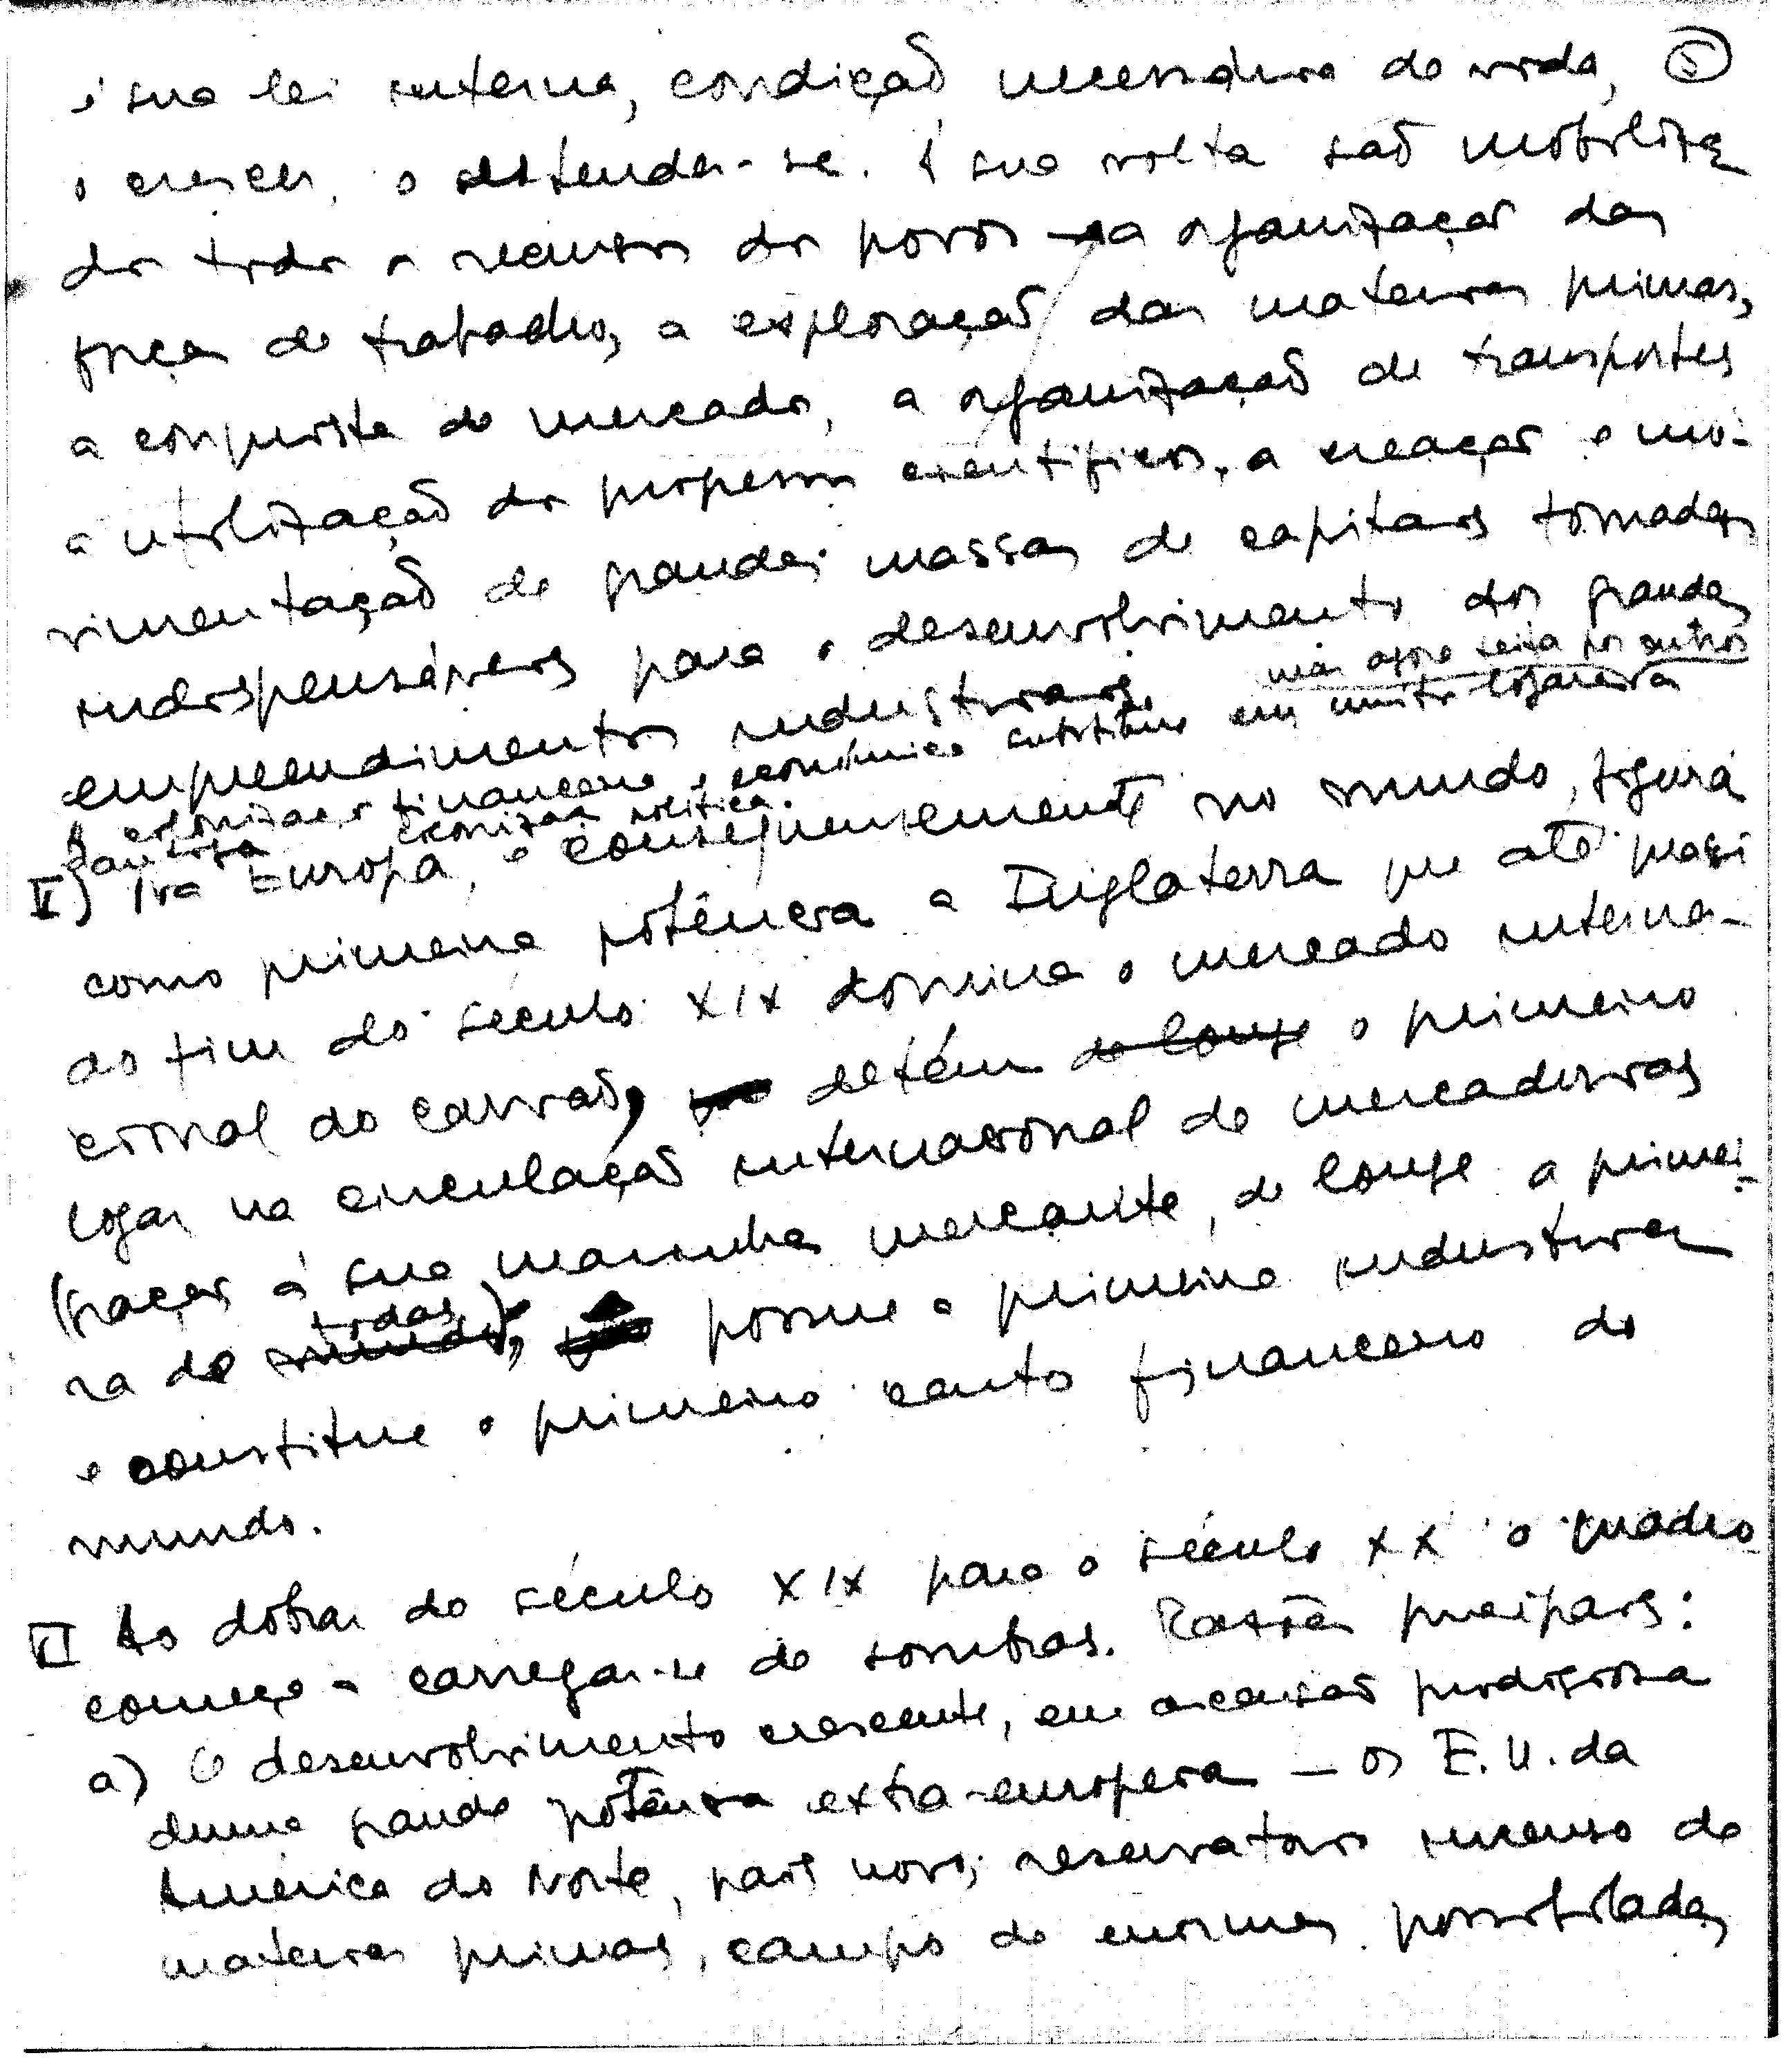 é sua lei interna, condição necessária de vida, ⑤
o crescer, o estender-se. À sua volta são mobiliza
dos todos os recursos dos povos — a organização das
forças de trabalho, a exploração das materias primas,
a conquista de mercados, a organização de transportes
a utilização dos progressos científicos, a creação e mo-
vimentação de grandes massas de capitais tornadas
indispensáveis para o desenvolvimento dos grandes
empreendimentos industriais.
mas agora feita por outros
A colonização financeira e económica substitue em muitos lugares a
colonização política.
V) Na Europa, e consequensemente no mundo, figura
como primeira potência a Inglaterra que até quasi
ao fim do século XIX domina o mercado interna-
cional do carvão, detém de longe o primeiro
logar na circulação internacional de mercadorias
(graças á sua marinha mercante, de longe a primei-
ra de todas), possue a primeira industria
e constitue o primeiro centro financeiro do
mundo.
VI Ao dobrar do século XIX para o século XX o quadro
começa a carregar-se de sombras. Razões principais:
a) O desenvolvimento crescente, em ascensão prodigiosa
duma grande potência extra-europeia — os E.U. da
América do Norte, país novo, reservatorio imenso de
materias primas, campo de enormes possibilidades